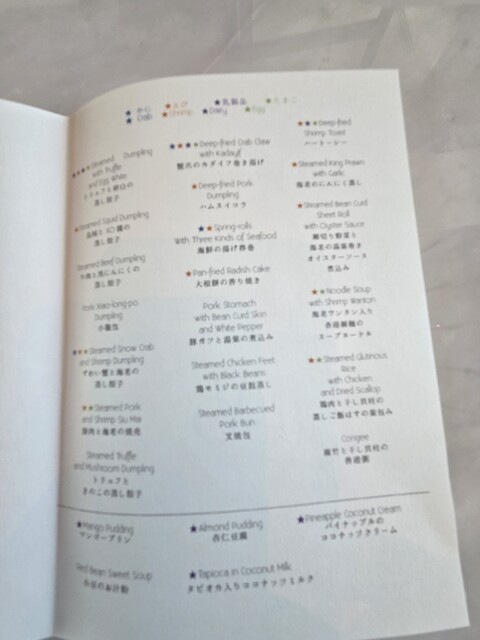 ★ かに
★ Crab
★ えび
★ Shrimp
★ 乳製品
★ Dairy
★ たまご
★ Egg
★★★★Steamed Dumpling
with Truffle
and Egg White
トリュフと卵白の
蒸し餃子
★Steamed Squid Dumpling
の
蒸し餃子
Steamed Beef Dumpling
牛肉と黒にんにくの
蒸し餃子
Pork Xiao-long-po
Dumpling
小籠包
★★★Steamed Snow Crab
and Shrimp Dumpling
ずわい蟹と海老の
蒸し餃子
★★Steamed Pork
and Shrimp Siu Mai
豚肉と海老の焼売
Steamed Truffle
and Mushroom Dumpling
トリュフと
きのこの蒸し餃子
★★★★Deep-fried Crab Claw
with Kadayif
蟹爪のカダイフ巻き揚げ
★Deep-fried Pork
Dumpling
ハムスイコラ
★★Spring-rolls
With Three Kinds of Seafood
海鮮の揚げ春巻
★Pan-fried Radish Cake
大根餅の香り焼き
Pork Stomach
with Bean Curd Skin
and White Pepper
豚ガツと湯葉の煮込み
Steamed Chicken Feet
with Black Beans
鶏モミジの豆鼓蒸し
Steamed Barbecued
Pork Bun
叉焼包
★★★Deep-fried
Shrimp Toast
ハートーシー
★Steamed King Prawn
with Garlic
海老のにんにく蒸し
★Steamed Bean Curd
Sheet Roll
with Oyster Sauce
細切り野菜と
海老の湯葉巻き
オイスターソース
煮込み
★★Noodle Soup
with Shrimp Wanton
海老ワンタン入り
香港細麺の
スープヌードル
★★Steamed Glutinous
Rice
with Chicken
and Dried Scallop
鶏肉と干し貝柱の
蒸しご飯はすの葉包み
Congee
と干し貝柱の
香港粥
★Mango Pudding
マンゴープリン
★Almond Pudding
杏仁豆腐
★Pineapple Coconut Cream
パイナップルの
ココナッツクリーム
Red Bean Sweet Soup
小豆のお汁粉
★Tapioca in Coconut Milk
タピオカ入りココナッツミルク